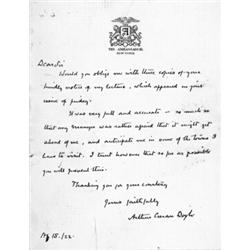 THE AMBASSADOR
NEW YORK
Dear Sir
Would you oblige me with three copies of your
kindly notice of my lecture, which appeared in your
issue of Sunday.
It was very full and accurate – so much so
that my manager was rather afraid that it might get
ahead of me, and anticipate me in some of the towns I
have to visit. I trust however that so far as possible
you will prevent this.
Thanking you for your courtesy
Yours faithfully
Arthur Conan Doyle
18/22.